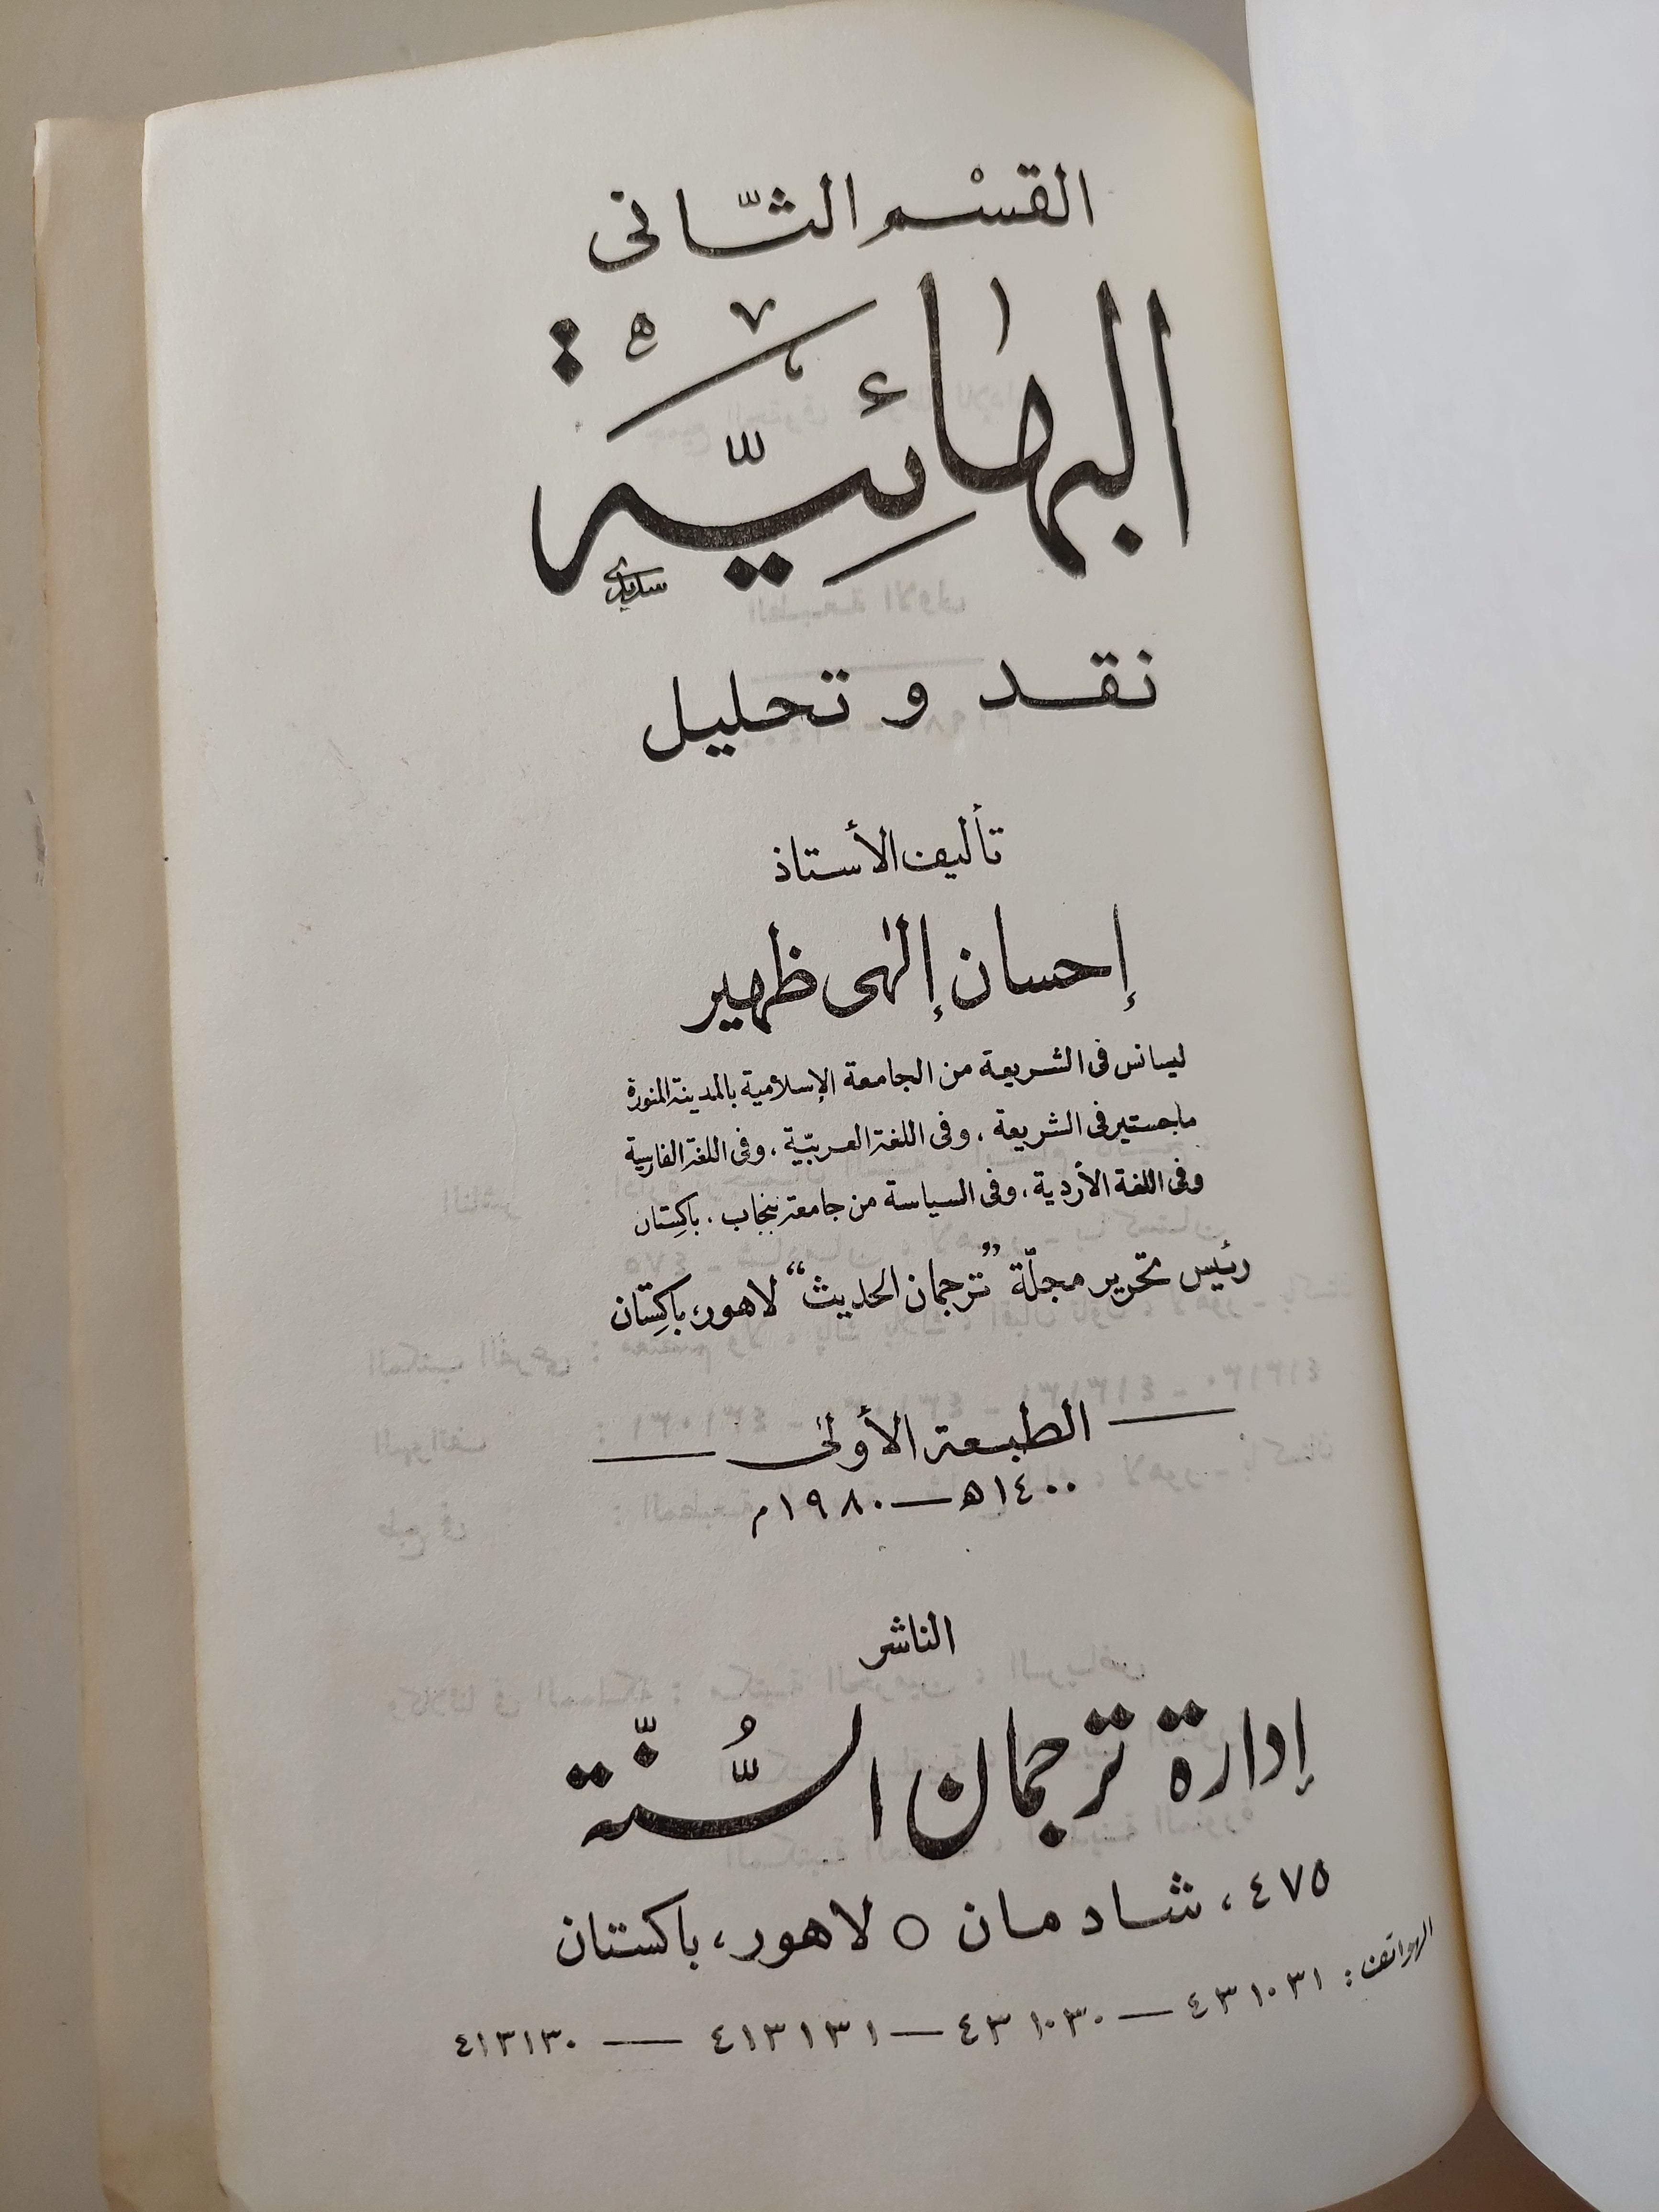 القسْم الثّانى
البهائيّة
نقد و تحليل
تأليف الأستاذ
إحسان إلٰهى ظهير
ليسانس فى الشريعة من الجامعة الإسلامية بالمدينة المنورة
ماجستير فى الشريعة ، وفى اللغة العربيّة ، وفى اللغة الفارسية
وفى اللغة الأردية ، وفى السياسة من جامعة بنجاب . باكِستان
رئيس تحرير مجلّة "ترجمان الحديث" لاهور، باكِستان
الطبعة الأولىٰ
١٤٠٠ھ — ١٩٨٠م
الناشر
إدارة ترجمان السُّنّة
٤٧٥ ، شادمان ○ لاهور ، باكستان
الهواتف : ٤٣١٠٣١ — ٤٣١٠٣٠ — ٤١٣١٣١ — ٤١٣١٣٠